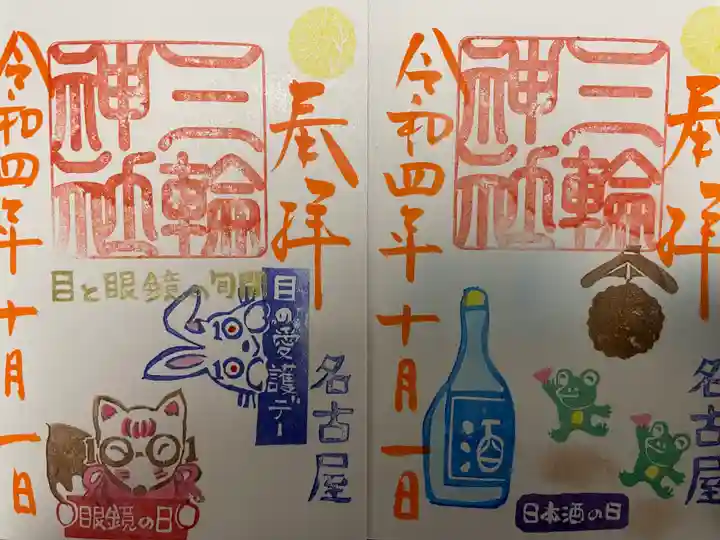 奉拝
三輪
神社
令和四年十月一日
目と眼鏡の旬間
目の愛護デー
名古屋
眼鏡の日
奉拝
三輪
神社
令和四年十月一日
酒
名古屋
日本酒の日